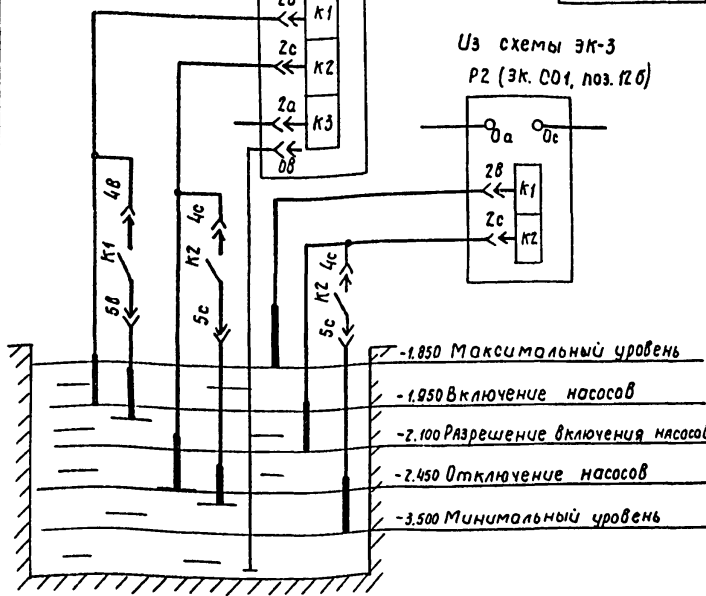 2в
К1
2с
К2
2а
К3
0в
Из схемы ЭК-3
Р2 (ЭК. СО1, поз. 12б)
0а
0с
2в
К1
2с
К2
4в
К1
5в
4с
К2
5с
4с
К2
5с
-1.850 Максимальный уровень
-1.950 Включение насосов
-2.100 Разрешение включения насосов
-2.450 Отключение насосов
-3.500 Минимальный уровень